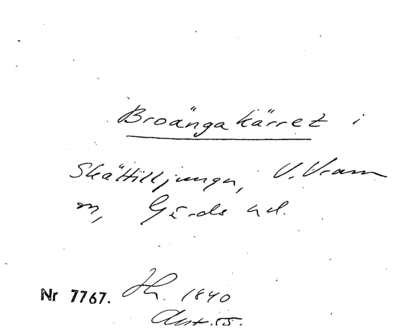 Broängakärret i
Skättilljunga, V. Vram
sn, Gärds hd.
Nr 7767. Hh. 1840
Ant. 55.